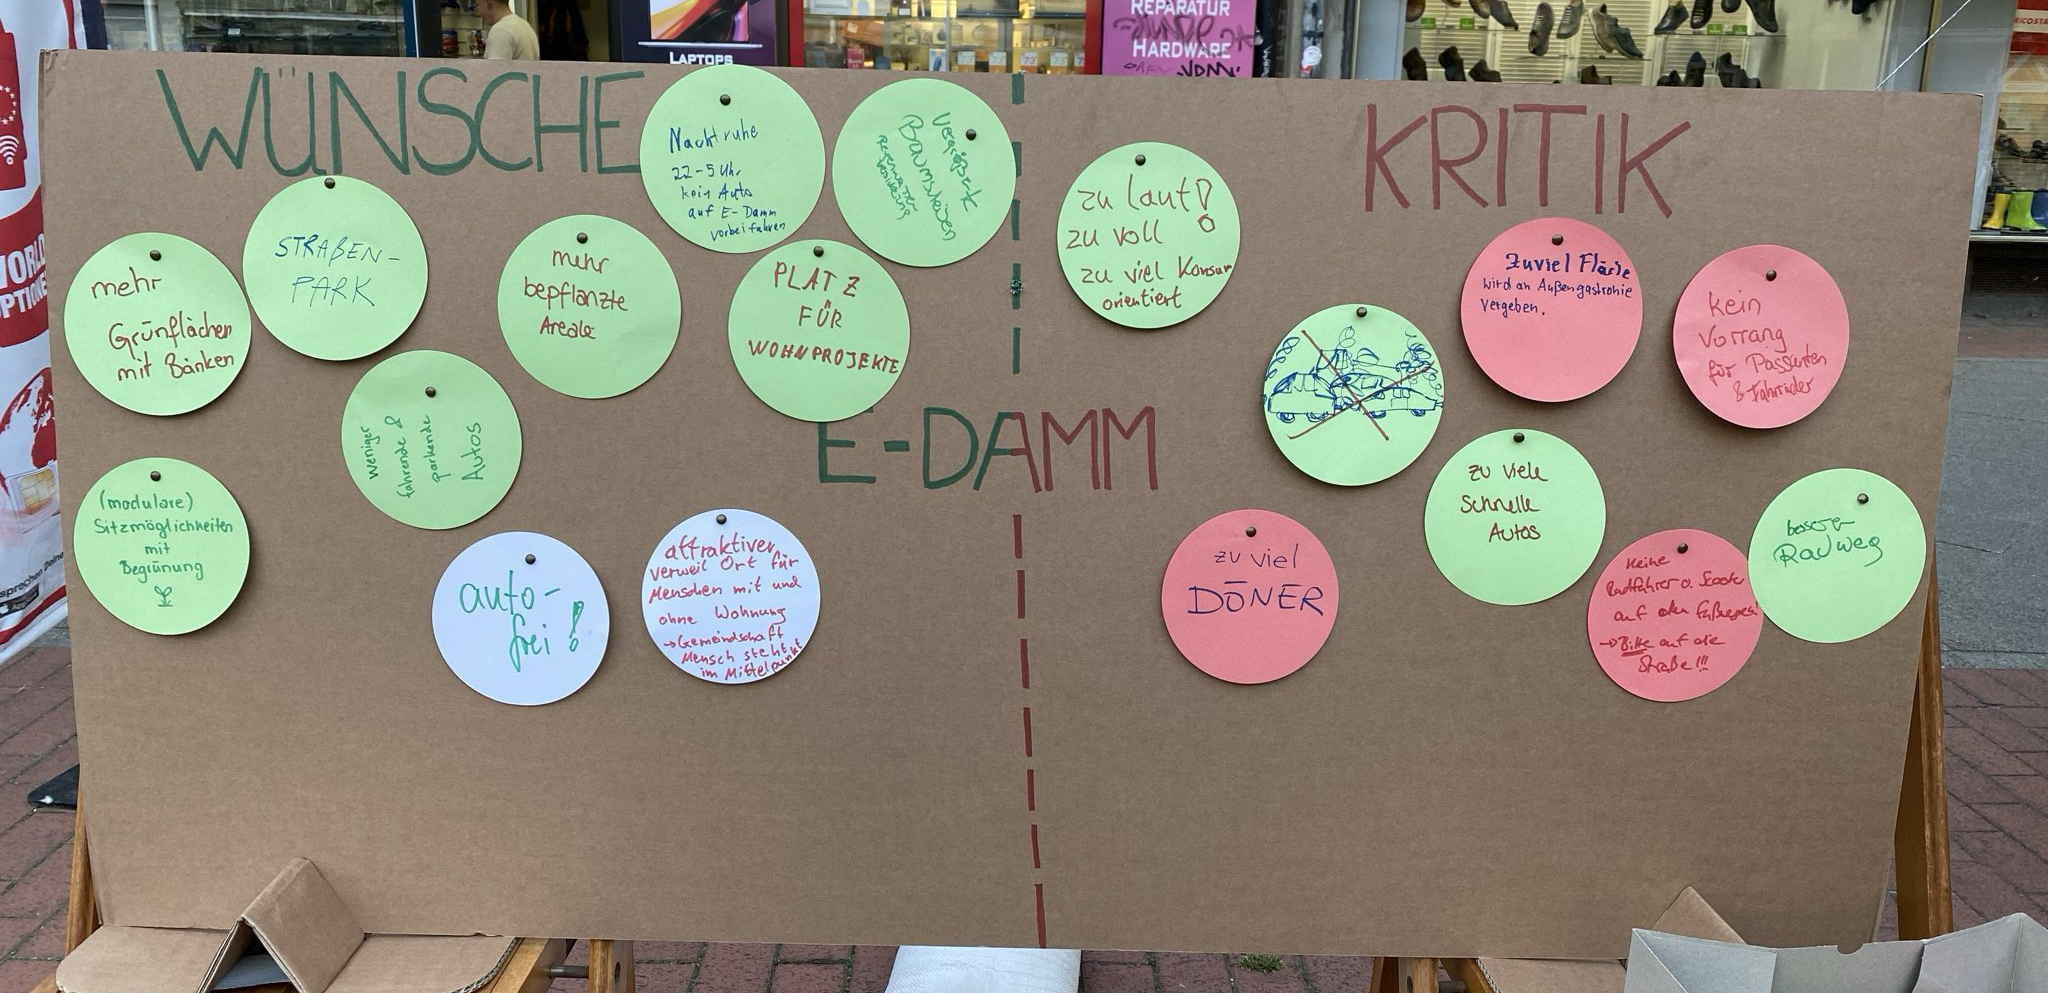 WÜNSCHE
Nachtruhe
22-5 Uhr
kein Auto
auf E-Damm
vorbeifahren
Vergrößerte
Baumscheiben
STRAßEN-
PARK
mehr
Grünflächen
mit Bänken
mehr
bepflanzte
Areale
PLATZ
FÜR
WOHNPROJEKTE
weniger
fahrende &
parkende
Autos
(modulare)
Sitzmöglichkeiten
mit
Begrünung
auto-
frei!
attraktiver
verweil Ort für
Menschen mit und
ohne Wohnung
→Gemeindschaft
Mensch steht
im Mittelpunkt
E-DAMM
KRITIK
zu laut!
zu voll
zu viel Konsum
orientiert
Zuviel Fläche
wird an Außengastronie
vergeben.
Kein
Vorrang
für Passanten
& Fahrräder
zu viele
Schnelle
Autos
zu viel
DÖNER
Keine
Radfahrer o. Scooter
auf den Fußwegen!
→Bitte auf die
Straße!!!
Radweg
LAPTOPS
REPARATUR
HARDWARE
WORLD